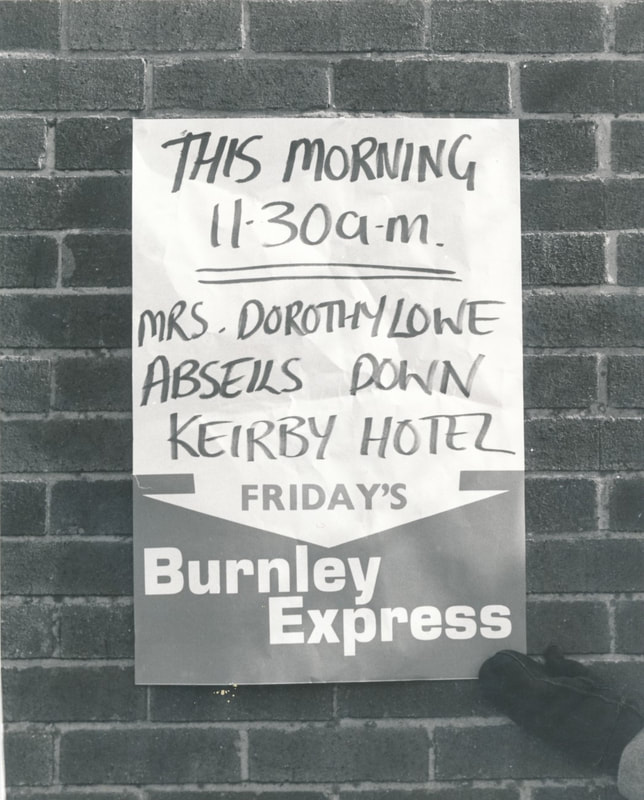 THIS MORNING
11·30a·m.
MRS. DOROTHY LOWE
ABSEILS DOWN
KEIRBY HOTEL
FRIDAY'S
Burnley
Express